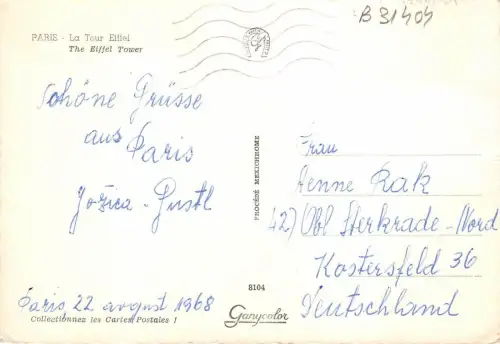 B 31404
PARIS - La Tour Eiffel
The Eiffel Tower
Schöne Grüsse
aus Paris
Jožica - Gustl
Paris 22 avgust 1968
Collectionnez les Cartes Postales !
PROCÉDÉ MEXICHROME
8104
Ganycolor
Frau
Henne Rak
42) Obl Sterkrade-Nord
Kostersfeld 36
Deutschland